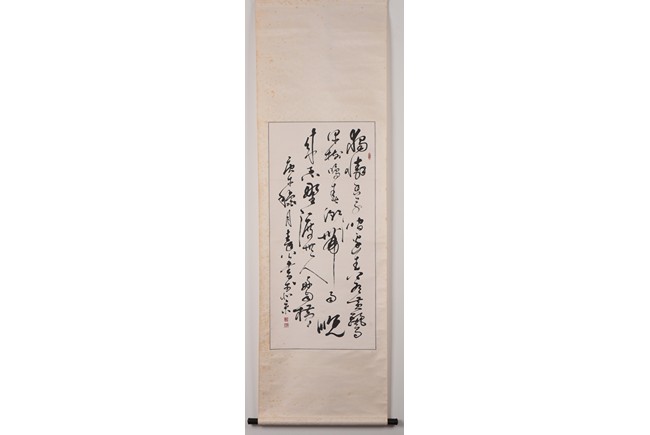 獨憐幽草澗邊生上有黃鸝
深樹鳴春潮帶雨晚
來急野渡無人舟自橫
庚午月書於北京